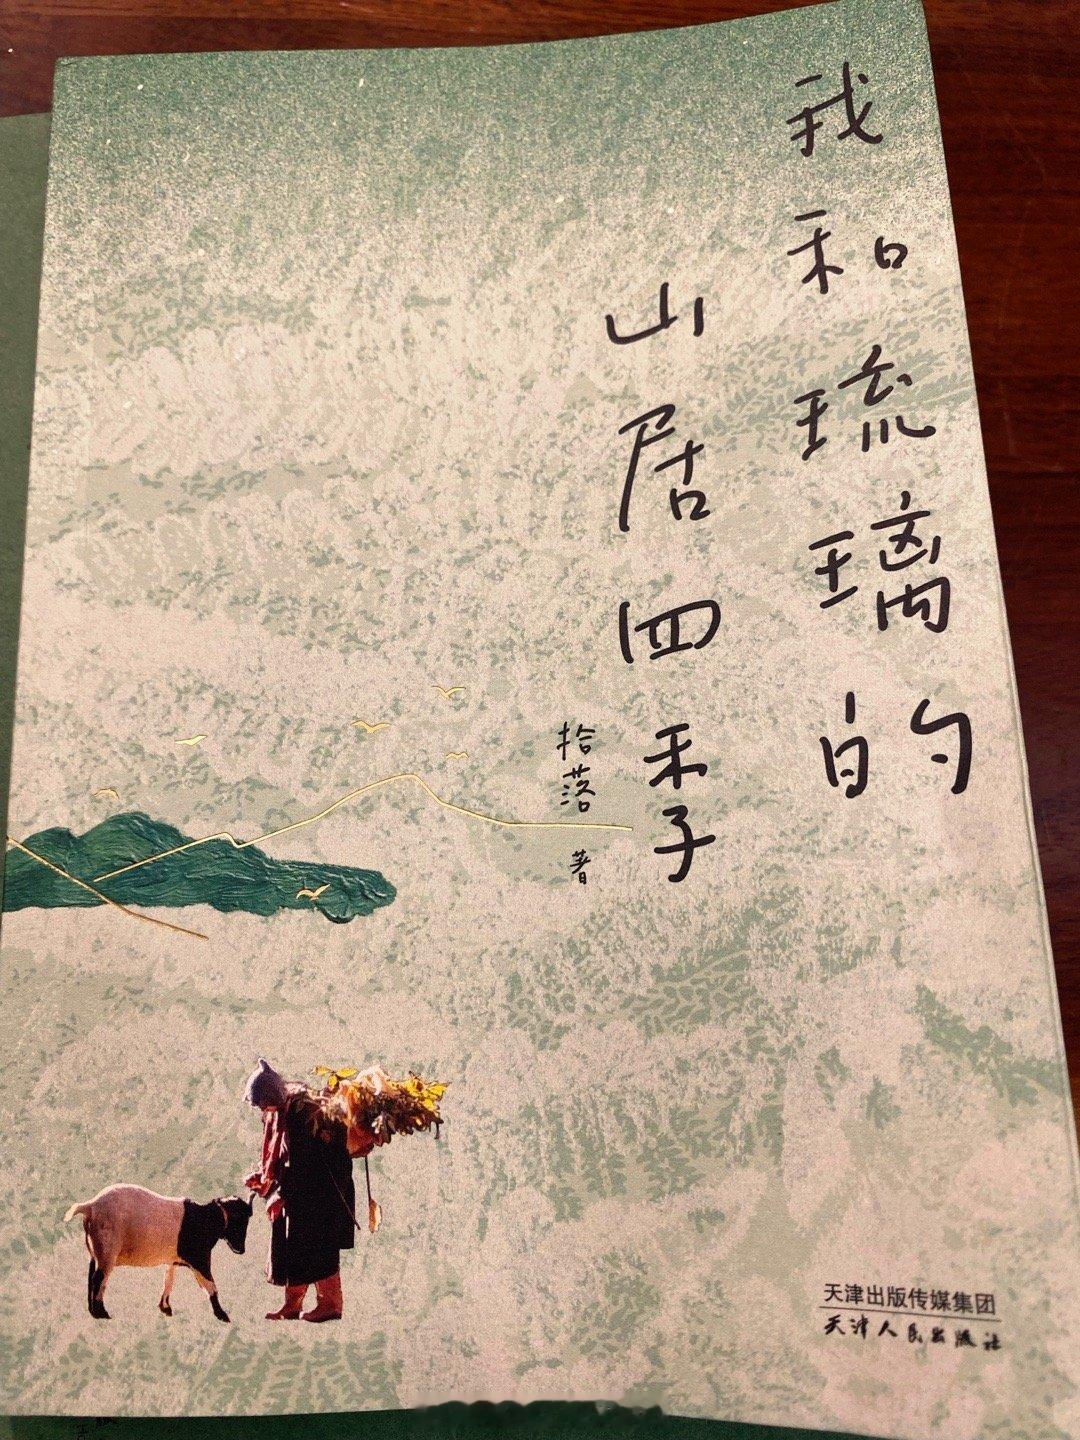 我和琉璃的
山居四季
拾落 著
天津出版传媒集团
天津人民出版社